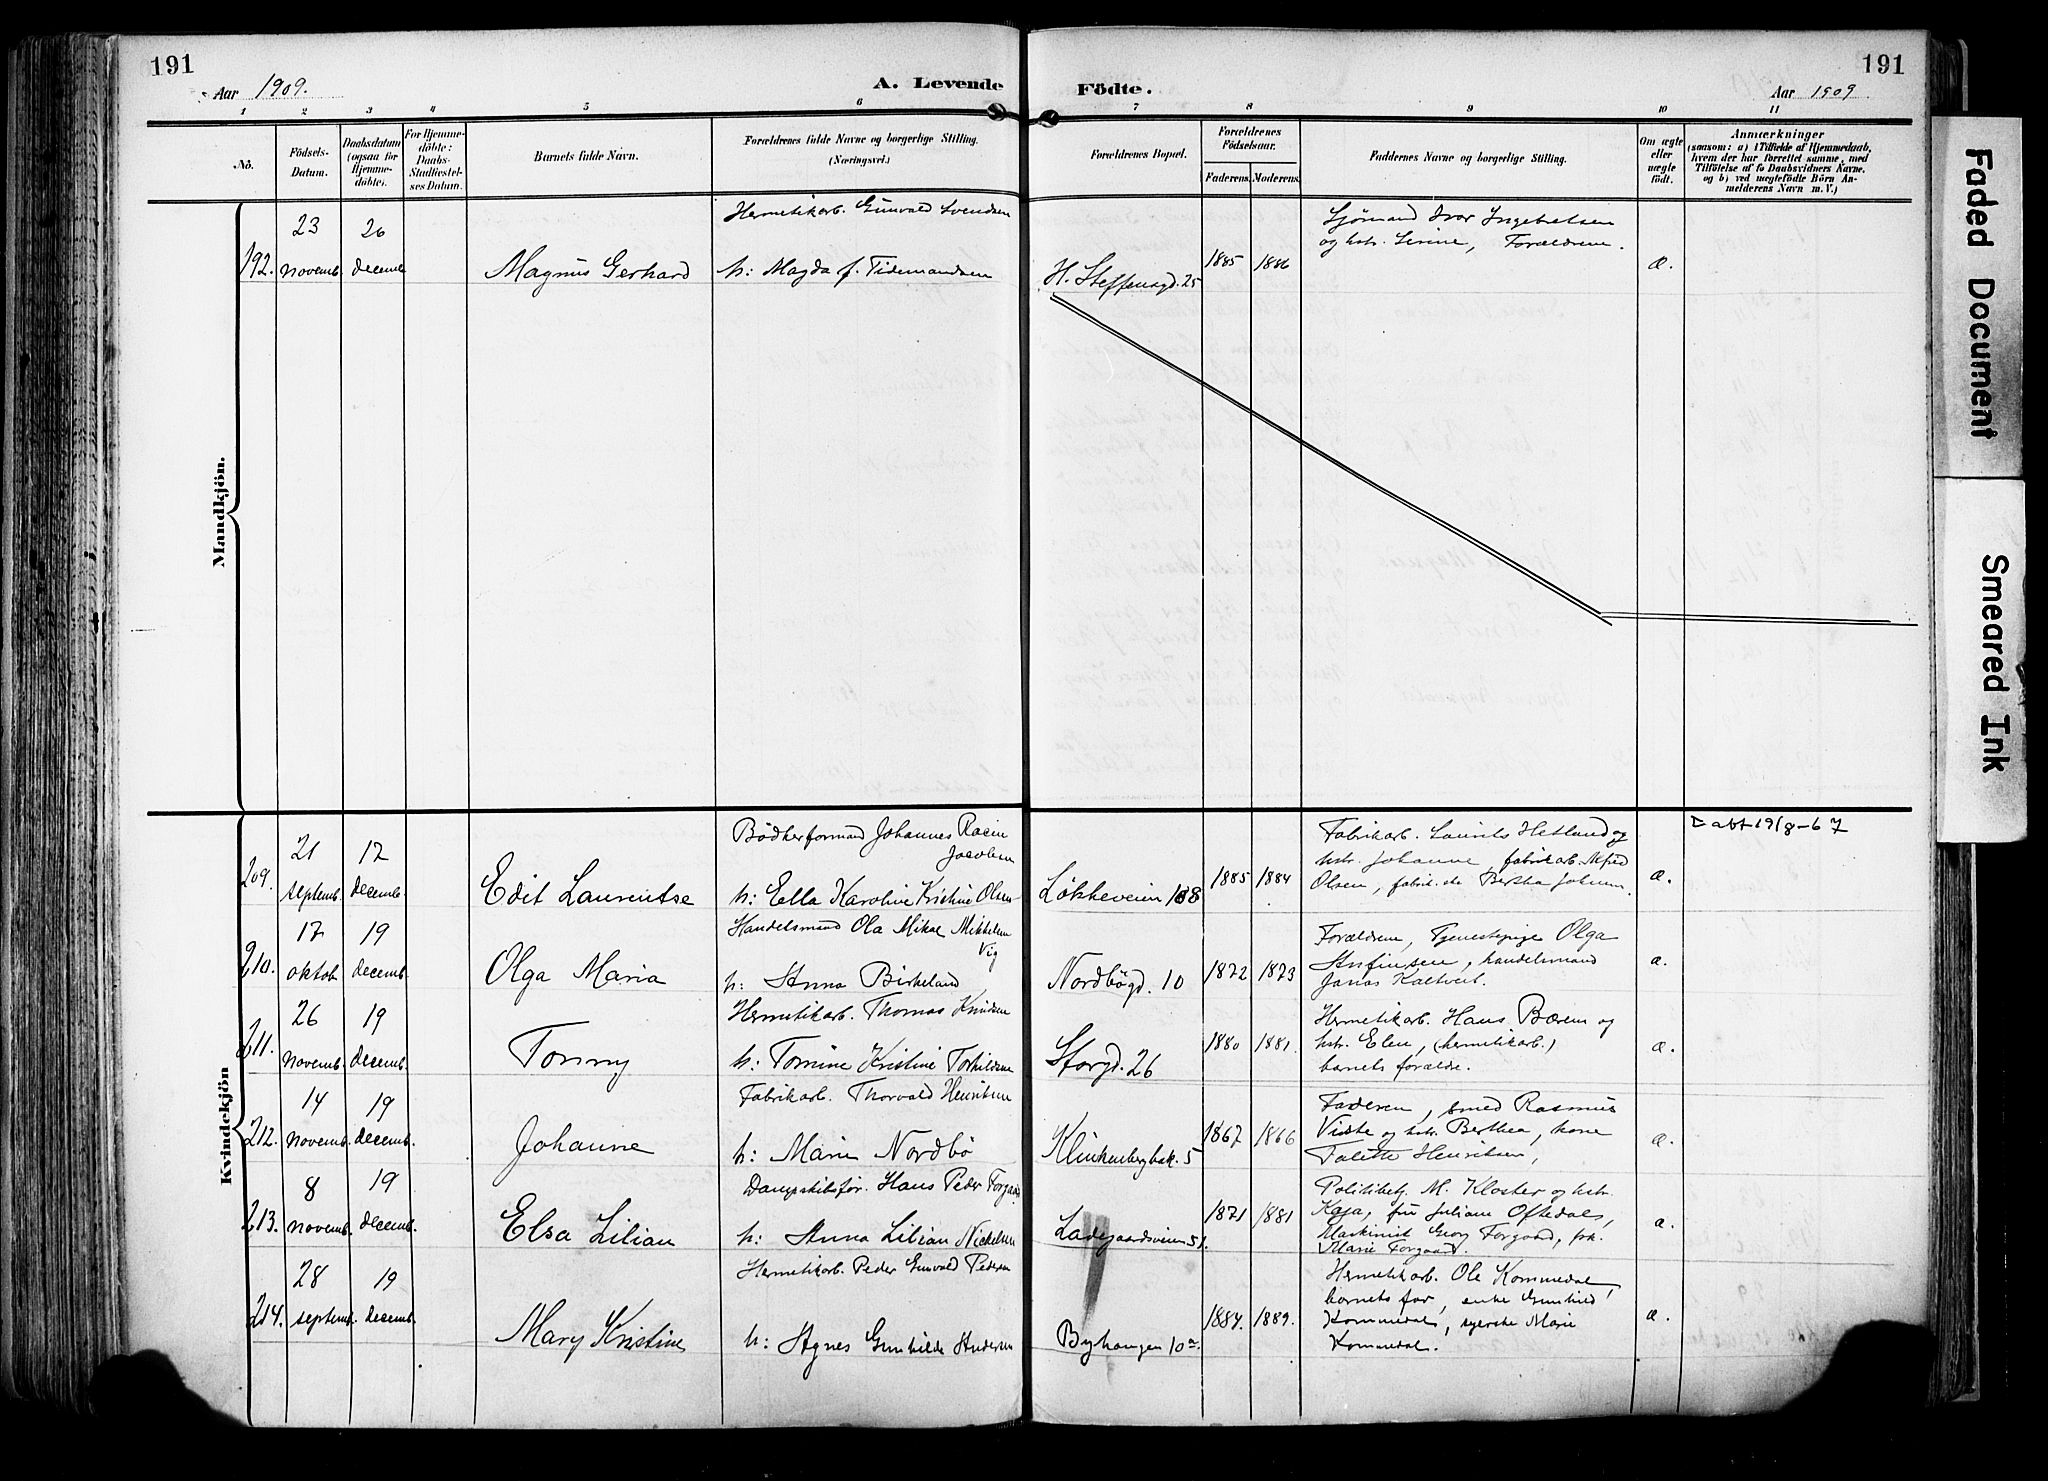 191
Aar 1909.
A. Levende
Födte.
191
Aar 1909
1 2 3 4 5 6 7 8 9 10 11
No.
Födsels-Datum.
Daabsdatum (ogsaa for Hjemmedöbte).
For Hjemmedöbte: Daabs-Stadfæstelses Datum.
Barnets fulde Navn.
Forældrenes fulde Navne og borgerlige Stilling.
(Næringsvei.)
Forældrenes Bopæl.
Forældrenes Födselsaar.
Faderens. Moderens.
Faddernes Navne og borgerlige Stilling.
Om ægte eller uægte födt.
Anmærkninger
(saasom: a) i Tilfælde af Hjemmedaab, hvem der har forrettet samme, med Tilföielse af to Daabsvidners Navne, og b) ved uægtefödte Börn Anmelderens Navn m. V.)
Mandkjön.
192.
23 novemb.
26 decemb.
Magnus Gerhard
Hermetikarb. Gunvald Svendsen
h: Magda f. Tidemandsen
H. Steffensgd. 25
1885 1886
Sjömand Ivar Ingebretsen
og hstr. Serine, Forældrene.
æ.
Kvindekjön
209.
21 septemb.
12 decemb.
Edit Laurentse
Bödkerformand Johannes Rasin
Jacobsen
h: Ella Karoline Kristine Olsen
Lökkeveien 108
1885 1884
Fabrikarb. Laurits Hetland og
hstr. Johanne, fabrikarb. Alfred
Olsen, fabrik.ske Bertha Johnsen.
æ.
D abt 19/8-67
210.
17 oktob.
19 decemb.
Olga Maria
Handelsmand Ola Mikal Mikkelsen
Vig
h: Anna Birkeland
Nordbögd. 10
1872 1873
Forældrene, Tjenestepige Olga
Anfinsen, handelsmand
Jonas Kaltveit.
æ.
211.
26 novemb.
19 decemb.
Tonny
Hermetikarb. Thomas Knudsen
h: Tomine Kristine Torkildsen
Storgd. 26
1880 1881.
Hermetikarb. Hans Bærem og
hstr. Elen, (hermetikarb.)
barnets forælde.
æ.
212.
14 novemb.
19 decemb.
Johanne
Fabrikarb. Thorvald Henriksen
h: Marie Nordbö
Klinkenbergbak. 5
1867 1866
Faderen, smed Rasmus
Viste og hstr. Berthea, kone
Talette Henriksen,
æ.
213.
8 novemb.
19 decemb.
Elsa Lilian
Dampskibsför. Hans Peder Forgaard
h: Anna Lilian Nickelsen
Ladegaardsveien 51.
1871 1881
Politibetj. M. Kloster og hstr.
Kaja, fru Juliane Oftedal,
Maskinist Georg Forgaard, frk.
Marie Forgaard.
æ.
214.
28 septemb.
19 decemb.
Mary Kristine
Hermetikarb. Peder Gunvald Pedersen
h: Agnes Gunhilde Andersen
Byhaugen 10a
1884. 1889.
Hermetikarb. Ole Kommedal
barnets far, enke Gunhild
Kommedal, syerske Marie
Kommedal.
æ.
Faded Document
Smeared Ink